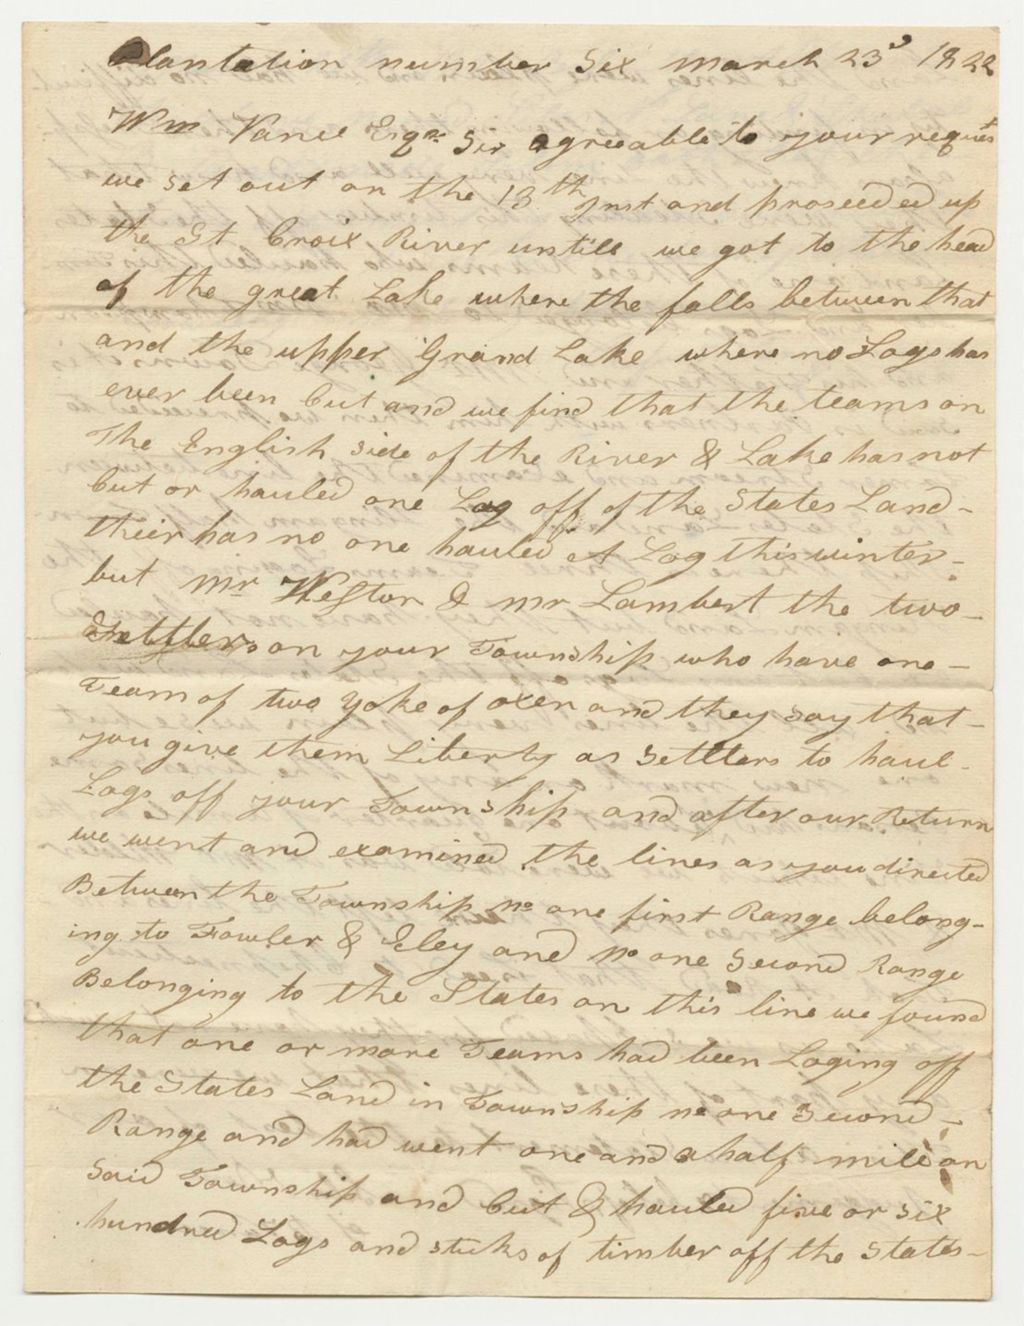 Plantation number Six march 23d 1822
Wm Vance Esqr Sir agreeable to your request
we set out on the 13th Inst and proseeded up
the St Croix River untill we got to the head
of the great Lake where the falls between that
and the upper Grand Lake where no Logs has
ever been Cut and we find that the teams on
The English side of the River & Lake has not
Cut or hauled one Log off of the States Land -
their has no one hauled A Log this winter -
but Mr Weston & mr Lambert the two -
Settlers on your Township who have one -
Team of two Yoke of oxen and they say that -
you give them Liberty as Settlers to haul -
Logs off your Township and after our Return
we went and examined the lines as you directed
Between the Township no one first Range belong-
ing to Fowler & Eley and no one Second Range
Belonging to the States on this line we found
that one or more Teams had been Loging off
the States Land in Township no one Second -
Range and had went one and a half mile on
Said Township and Cut & hauled five or six
hundred Logs and sticks of timber off the States -